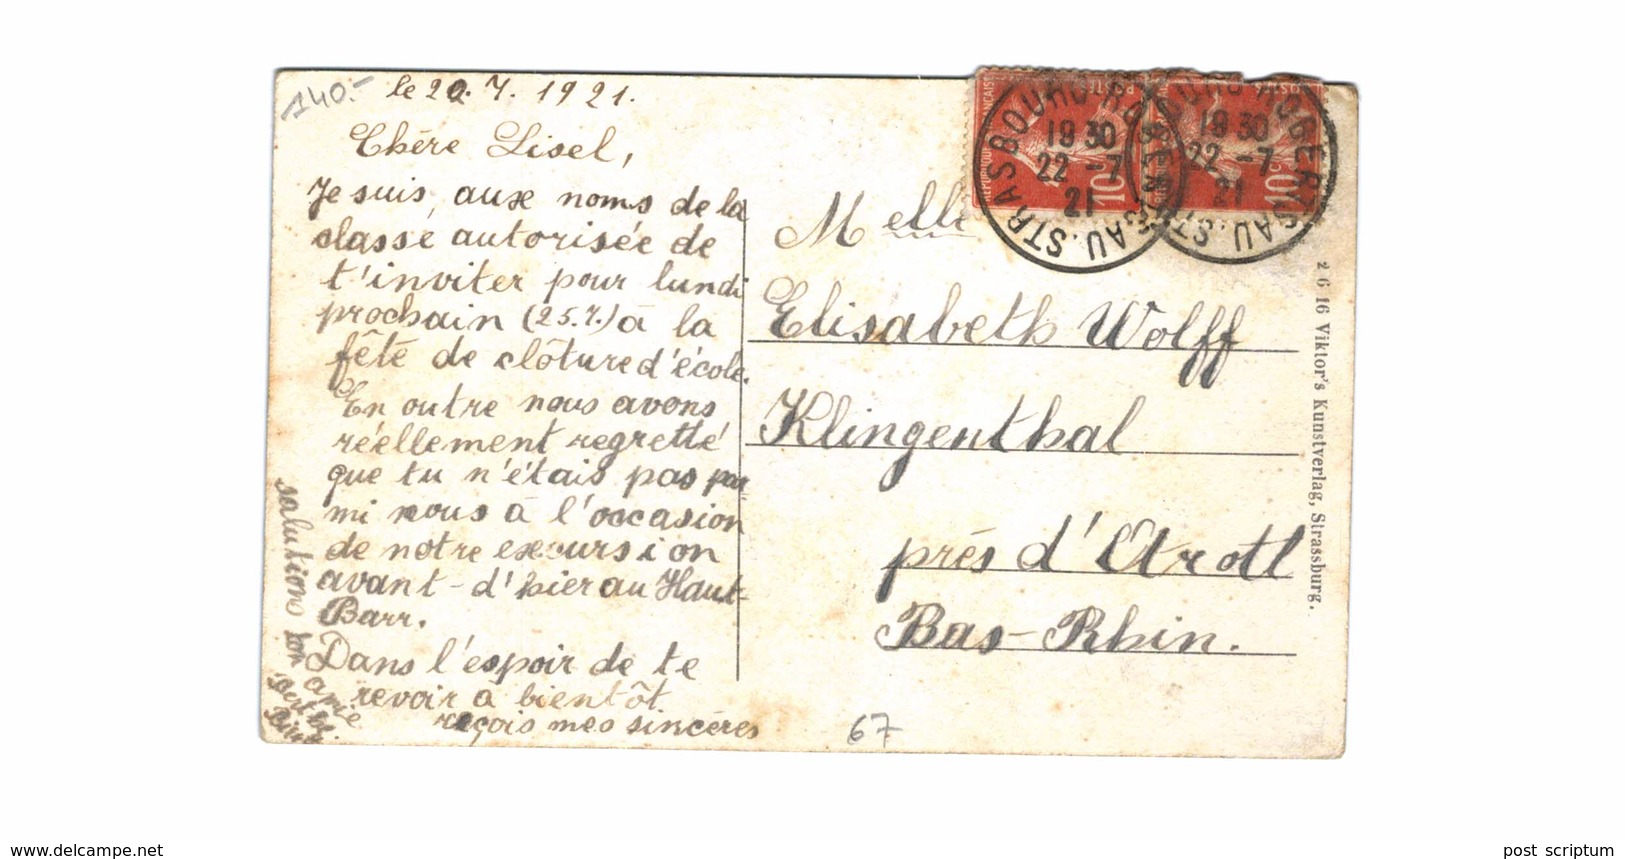 140.-
le 20.7.1921.
Chère Lisel,
Je suis, aux noms de la
classe autorisée de
t'inviter pour lundi
prochain (25.7.) à la
fête de clôture d'école.
En outre nous avons
réellement regretté
que tu n'étais pas par-
mi nous à l'occasion
de notre excursion
avant-d'hier au Haut-
Barr.
Dans l'espoir de te
revoir à bientôt
reçois mes sincères
salutions ton
amie
Melle
Elisabeth Wolff
Klingenthal
près d'Otrott
Bas-Rhin.
67
STRASBOURG
19 30
22 -7
21
10c
19 30
22 -7
21
10c
2 6 16 Viktor's Kunstverlag, Strassburg.
www.delcampe.net
post scriptum